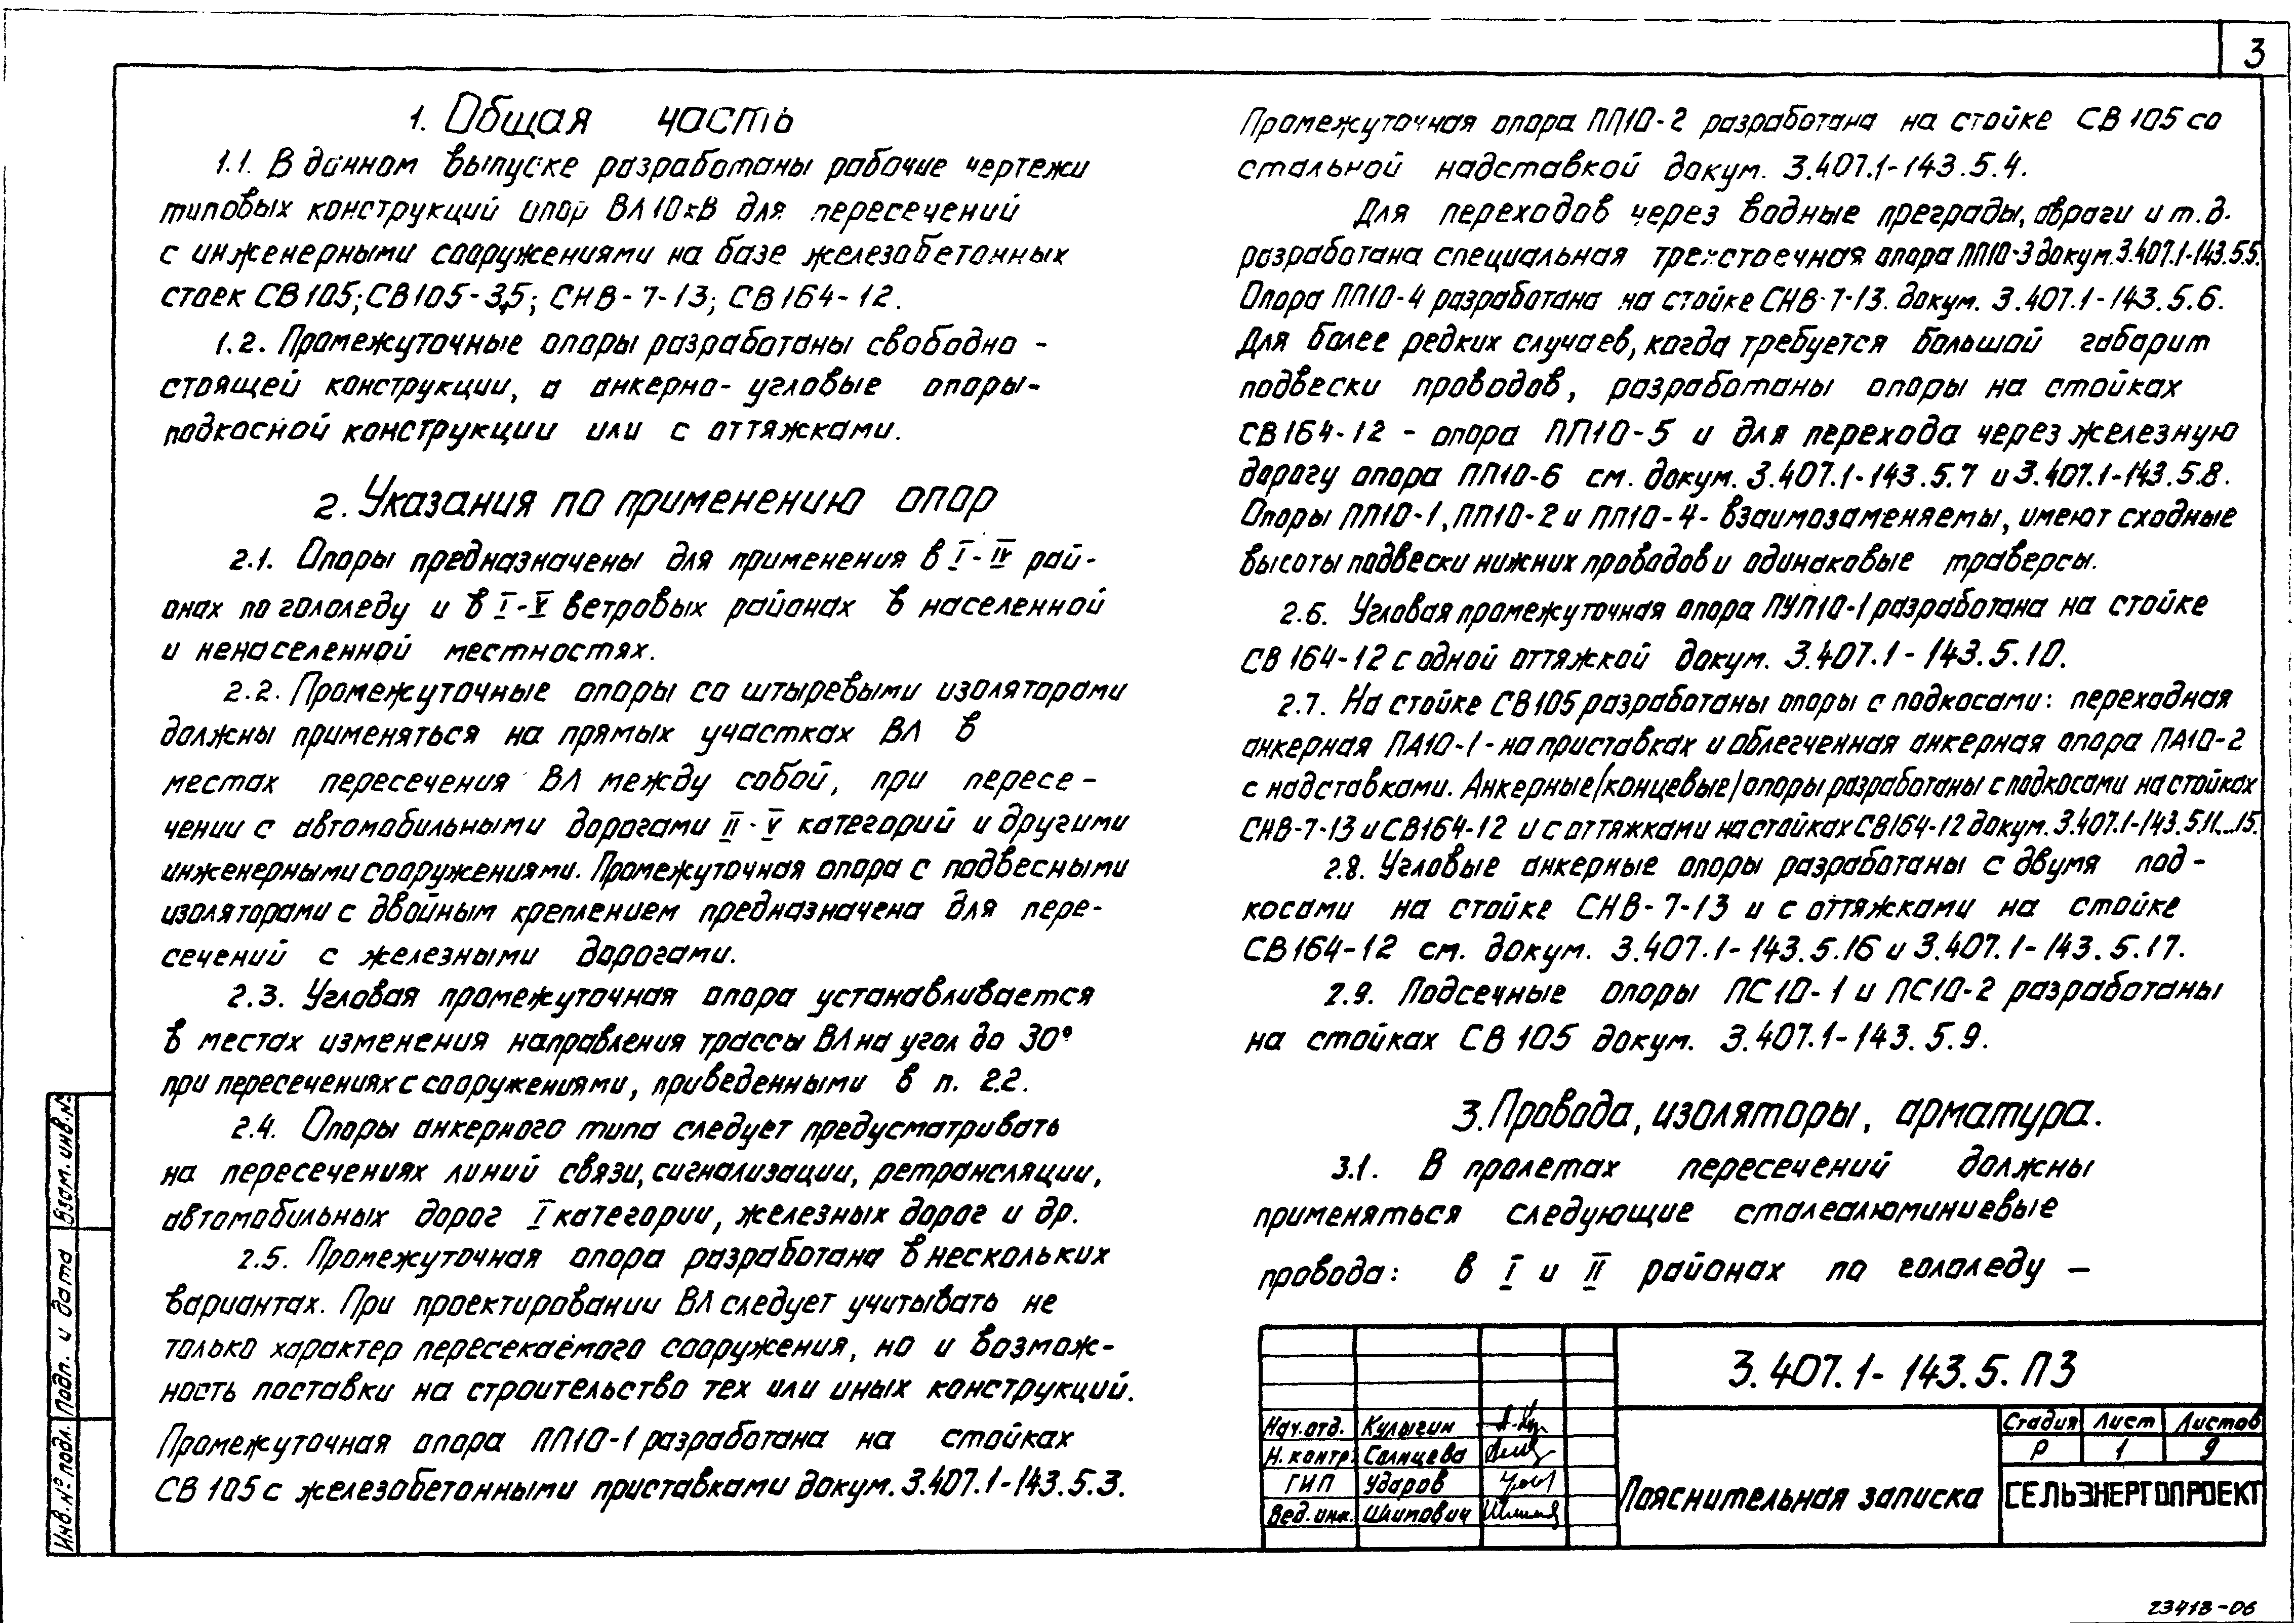 3
1. Общая часть
1.1. В данном выпуске разработаны рабочие чертежи
типовых конструкций опор ВЛ 10кВ для пересечений
с инженерными сооружениями на базе железобетонных
стоек СВ105; СВ105-3,5; СНВ-7-13; СВ164-12.
1.2. Промежуточные опоры разработаны свободно -
стоящей конструкции, а анкерно-угловые опоры-
подкосной конструкции или с оттяжками.
2. Указания по применению опор
2.1. Опоры предназначены для применения в I-IV рай-
онах по гололеду и в I-V ветровых районах в населенной
и ненаселенной местностях.
2.2. Промежуточные опоры со штыревыми изоляторами
должны применяться на прямых участках ВЛ в
местах пересечения ВЛ между собой, при пересе-
чении с автомобильными дорогами II-V категорий и другими
инженерными сооружениями. Промежуточная опора с подвесными
изоляторами с двойным креплением предназначена для пере-
сечений с железными дорогами.
2.3. Угловая промежуточная опора устанавливается
в местах изменения направления трассы ВЛ на угол до 30°
при пересечениях с сооружениями, приведенными в п. 2.2.
2.4. Опоры анкерного типа следует предусматривать
на пересечениях линий связи, сигнализации, ретрансляции,
автомобильных дорог I категории, железных дорог и др.
2.5. Промежуточная опора разработана в нескольких
вариантах. При проектировании ВЛ следует учитывать не
только характер пересекаемого сооружения, но и возмож-
ность поставки на строительство тех или иных конструкций.
Промежуточная опора ПП10-1 разработана на стойках
СВ 105 с железобетонными приставками докум. 3.407.1-143.5.3.
Промежуточная опора ПП10-2 разработана на стойке СВ 105 со
стальной надставкой докум. 3.407.1-143.5.4.
Для переходов через водные преграды, овраги и т.д.
разработана специальная трехстоечная опора ПП10-3 докум. 3.407.1-143.5.5.
Опора ПП10-4 разработана на стойке СНВ-7-13. докум. 3.407.1-143.5.6.
Для более редких случаев, когда требуется большой габарит
подвески проводов, разработаны опоры на стойках
СВ164-12 - опора ПП10-5 и для перехода через железную
дорогу опора ПП10-6 см. докум. 3.407.1-143.5.7 и 3.407.1-143.5.8.
Опоры ПП10-1, ПП10-2 и ПП10-4- взаимозаменяемы, имеют сходные
высоты подвески нижних проводов и одинаковые траверсы.
2.6. Угловая промежуточная опора ПУП10-1 разработана на стойке
СВ 164-12 с одной оттяжкой докум. 3.407.1-143.5.10.
2.7. На стойке СВ105 разработаны опоры с подкосами: переходная
анкерная ПА10-1-на приставках и облегченная анкерная опора ПА10-2
с надставками. Анкерные/концевые/опоры разработаны с подкосами на стойках
СНВ-7-13 и СВ164-12 и с оттяжками на стойках СВ164-12 докум. 3.407.1-143.5.11...15.
2.8. Угловые анкерные опоры разработаны с двумя под-
косами на стойке СНВ-7-13 и с оттяжками на стойке
СВ164-12 см. докум. 3.407.1-143.5.16 и 3.407.1-143.5.17.
2.9. Подсечные опоры ПС10-1 и ПС10-2 разработаны
на стойках СВ 105 докум. 3.407.1-143.5.9.
3. Провода, изоляторы, арматура.
3.1. В пролетах пересечений должны
применяться следующие сталеалюминиевые
провода: в I и II районах по гололеду -
3.407.1-143.5.ПЗ
Нач.отд. Кулыгин
Н. контр. Солнцева
ГИП Ударов
Вед. инж. Шлипович
Пояснительная записка
Стадия Лист Листов
Р 1 9
СЕЛЬЭНЕРГОПРОЕКТ
Инв.№ подл. Подп. и дата Взам. инв.№
23413-06